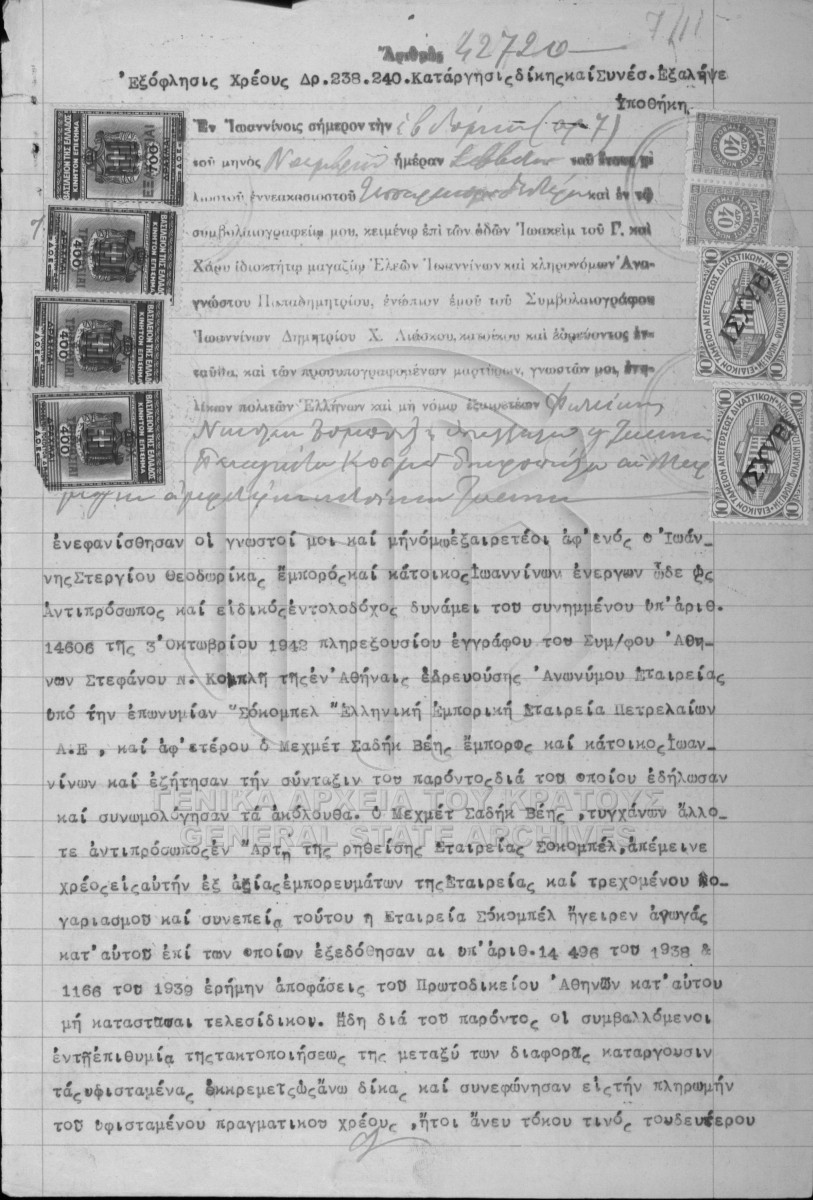 7/11
Ἀριθμὸς 42720
Ἐξόφλησις Χρέους Δρ.238.240.Κατάργησις δίκης καί Συνέσ.Εξαλήψε
Ὑποθήκη.
Ἐν Ἰωαννίνοις σήμερον τὴν ἑβδόμην (αρ 7)
τοῦ μηνὸς Νοεμβρίου ἡμέραν Σάββατον τοῦ ἔτους χι
λιοστοῦ ἐννεακοσιοστοῦ τεσσαρακοστοῦ δευτέρου καὶ ἐν τῷ
συμβολαιογραφείῳ μου, κειμένῳ ἐπὶ τῶν ὁδῶν Ἰωακεὶμ τοῦ Γ. καὶ
Χάρυ ἰδιοκτήτῳ μαγαζίῳ Ἐλεῶν Ἰωαννίνων καὶ κληρονόμων Ἀνα-
γνώστου Παπαδημητρίου, ἐνώπιον ἐμοῦ τοῦ Συμβολαιογράφου
Ἰωαννίνων Δημητρίου Χ. Λιάσκου, κατοίκου καὶ ἑδρεύοντος ἐν-
ταῦθα, καὶ τῶν προσυπογραφομένων μαρτύρων, γνωστῶν μοι, ἐνη-
λίκων πολιτῶν Ἑλλήνων καὶ μὴ νόμῳ ἐξαιρετέων
ἐνεφανίσθησαν οἱ γνωστοί μοι καί μήνόμωἐξαιρετέοι ἀφ'ενός ο Ἰωάν-
νηςΣτεργίου Θεοδωρίκας ἔμποροςκαί κάτοικοςΙωαννίνων ἐνεργων ὧδε ὡς
Ἀντιπρόσωπος καί εἰδικόςἐντολοδόχος δυνάμει του συνημμένου ὑπ'ἀριθ.
14606 τῆς 3 Ὀκτωβρίου 1942 πληρεξουσίου ἐγγράφου του Συμ/φου Ἀθη-
νων Στεφάνου Ν. Κομπλῆ τῆςἐν Ἀθήναις ἑδρευούσης Ἀνωνύμου Εταιρείας
ὑπό την ἐπωνυμίαν "Σόκομπελ "Ελληνική Εμπορική Εταιρεία Πετρελαίων
Α.Ε , καί ἀφ'ετέρου ὁ Μεχμέτ Σαδήκ Βέης ἔμπορος καί κάτοικοςἸωαν-
νίνων καί ἐζήτησαν τήν σύνταξιν του παρόντοςδιά του οποίου ἐδήλωσαν
καί συνωμολόγησαν τά ἀκόλουθα. Ὁ Μεχμέτ Σαδήκ Βέης ,τυγχάνων ἄλλο-
τε ἀντιπρόσωποςἐν Ἄρτῃ τῆς ρηθείσης Εταιρείας Σοκομπέλ,ἀπέμεινε
χρέοςεἰςαυτήν ἐξ ἀξίαςἐμπορευμάτων τηςΕταιρείας καί τρεχομένου λο-
γαριασμου καί συνεπείᾳ τούτου η Εταιρεία Σόκομπέλ ἤγειρεν ἀγωγάς
κατ'αὐτοῦ ἐπί των οποίων ἐξεδόθησαν αι ὑπ'ἀριθ.14 496 του 1938 &
1166 του 1939 ἐρήμην ἀποφάσεις του Πρωτοδικείου Ἀθηνῶν κατ'αὐτου
μή καταστᾶσαι τελεσίδικοι. Ἤδη διά του παρόντος οι συμβαλλόμενοι
ἐντῇἐπιθυμίᾳ τηςτακτοποιήσεως της μεταξύ των διαφορᾶς καταργουσιν
τάςυφισταμένας ἐκκρεμεῖςὡςἄνω δίκας καί συνεφώνησαν εἰςτήν πληρωμήν
του υφισταμένου πραγματικου χρέους ,ἤτοι ἄνευ τόκου τινός τουδευτέρου
ΓΕΝΙΚΑ ΑΡΧΕΙΑ ΤΟΥ ΚΡΑΤΟΥΣ
GENERAL STATE ARCHIVES
ΒΑΣΙΛΕΙΟΝ ΤΗΣ ΕΛΛΑΔΟΣ
ΚΙΝΗΤΟΝ ΕΠΙΣΗΜΑ
700
ΒΑΣΙΛΕΙΟΝ ΤΗΣ ΕΛΛΑΔΟΣ
ΚΙΝΗΤΟΝ ΕΠΙΣΗΜΑ
400
ΒΑΣΙΛΕΙΟΝ ΤΗΣ ΕΛΛΑΔΟΣ
ΚΙΝΗΤΟΝ ΕΠΙΣΗΜΑ
400
ΒΑΣΙΛΕΙΟΝ ΤΗΣ ΕΛΛΑΔΟΣ
ΚΙΝΗΤΟΝ ΕΠΙΣΗΜΑ
400
40
40
ΙΣΧΥΕΙ
10
ΙΣΧΥΕΙ
10